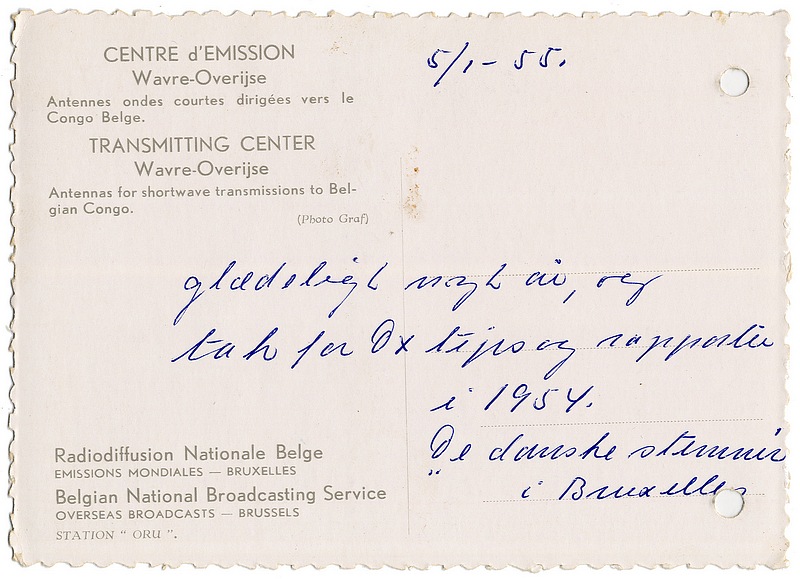 CENTRE d'EMISSION
Wavre-Overijse
Antennes ondes courtes dirigées vers le
Congo Belge.
TRANSMITTING CENTER
Wavre-Overijse
Antennas for shortwave transmissions to Bel-
gian Congo.
(Photo Graf)
5/1-55.
glædeligt nyt år, og
tak for Dx tips og rapporter
i 1954.
"De danske stemmer
i Bruxelles
Radiodiffusion Nationale Belge
EMISSIONS MONDIALES — BRUXELLES
Belgian National Broadcasting Service
OVERSEAS BROADCASTS — BRUSSELS
STATION " ORU ".